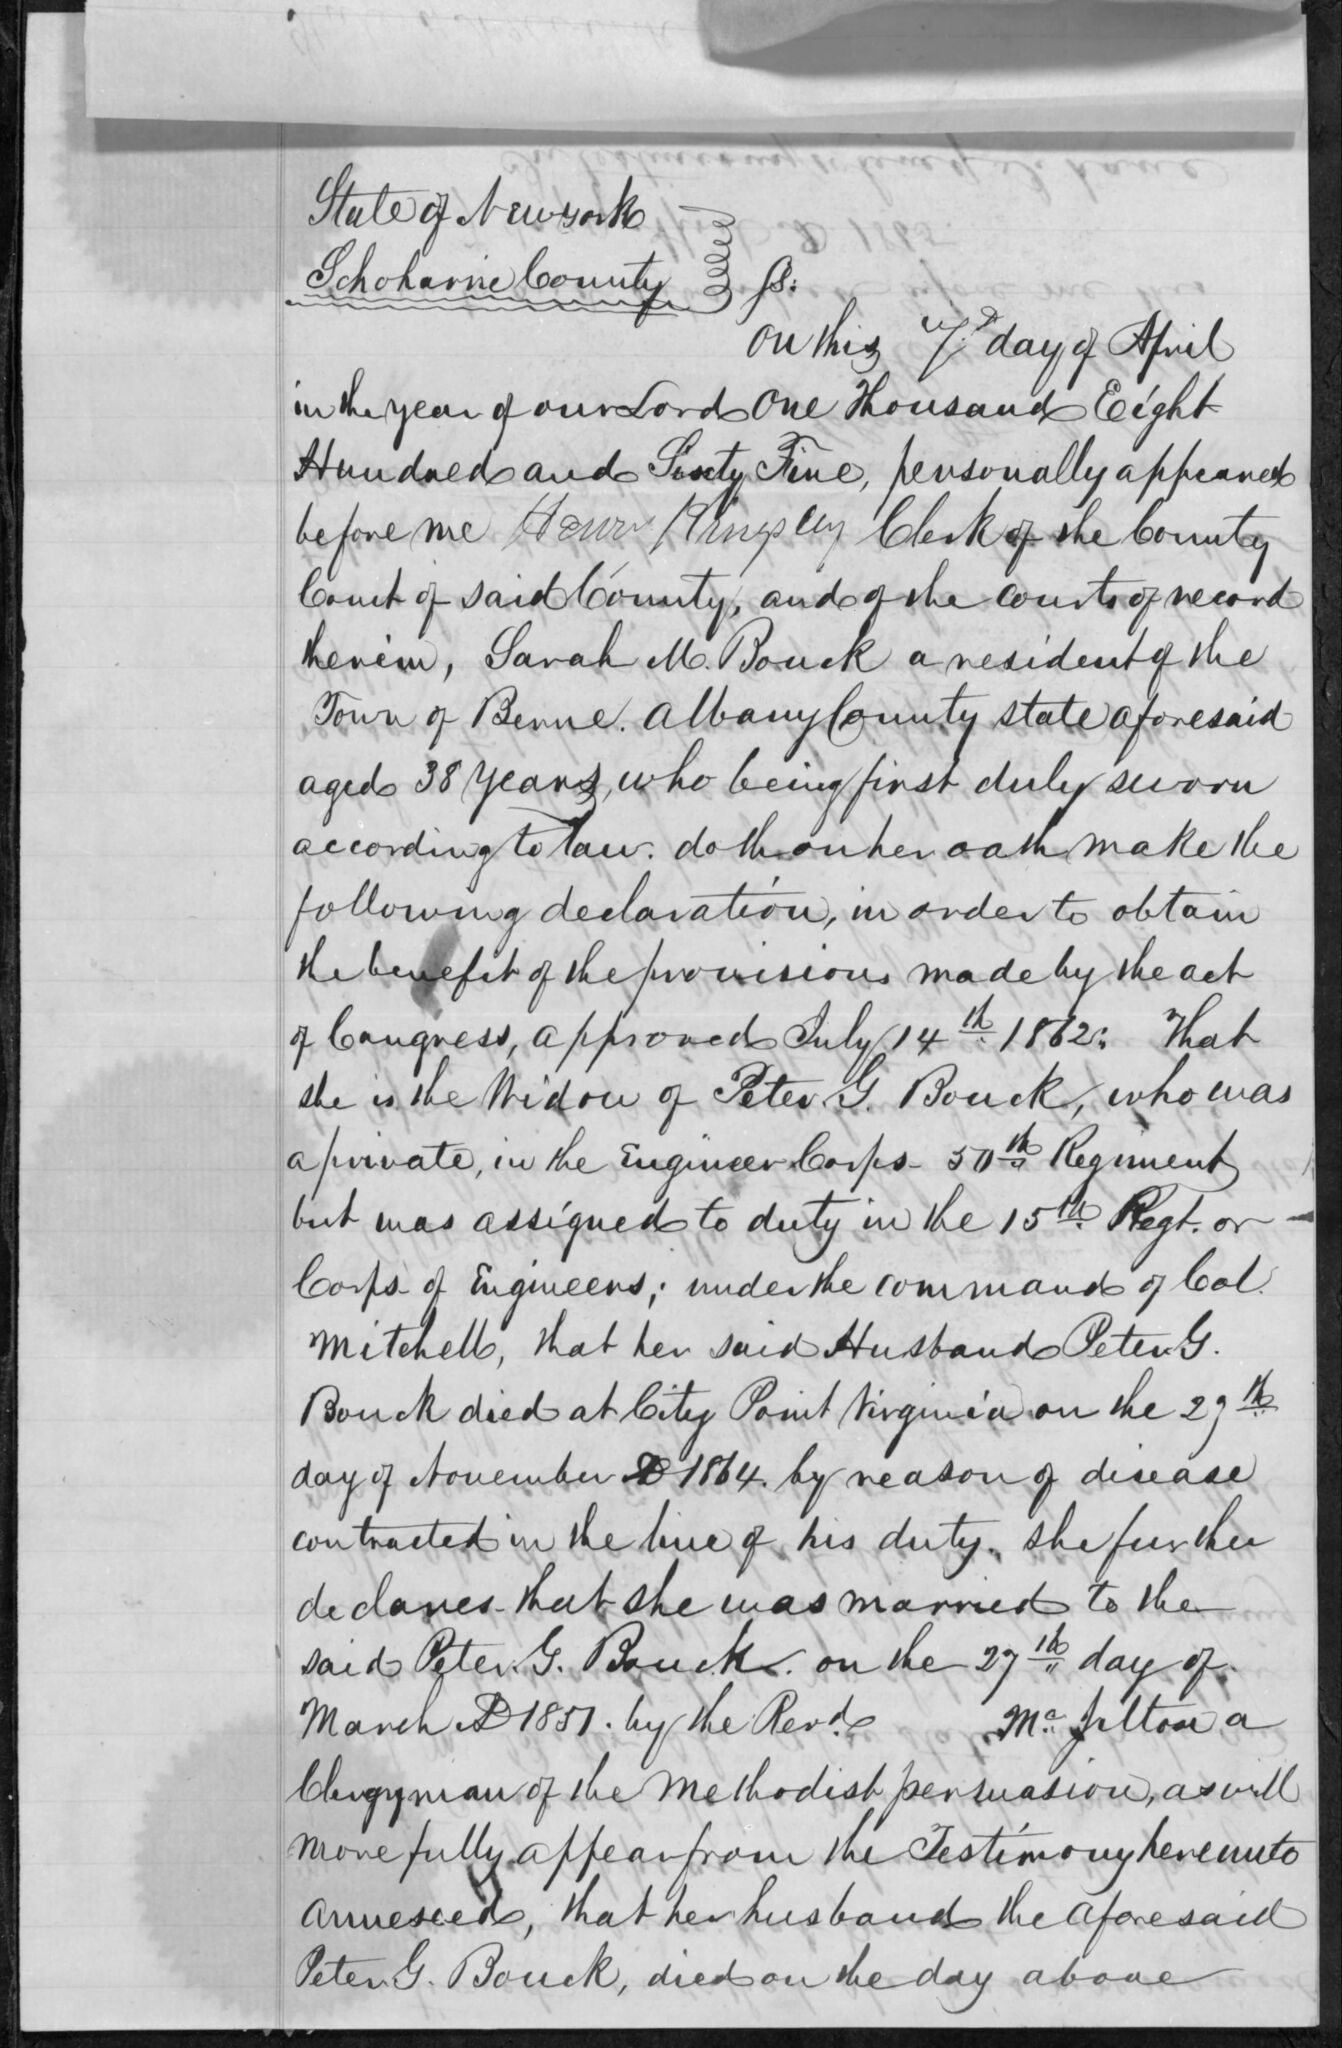 State of New York
Schoharie County } ss:
On this 7th day of April
in the year of our Lord One Thousand Eight
Hundred and Sixty Five, personally appeared
before me Kingsley Clerk of the County
Court of said County, and of the courts of record
therein, Sarah M. Bouck a resident of the
Town of Berne. Albany County state aforesaid
aged 38 years, who being first duly sworn
according to law. doth on her oath make the
following declaration, in order to obtain
the benefit of the provisions made by the act
of Congress, approved July 14th 1862: That
she is the Widow of Peter G. Bouck, who was
a private, in the Engineer Corps - 50th Regiment
but was assigned to duty in the 15th Regt. or
Corps of Engineers; under the command of Col.
Mitchell, that her said Husband Peter G.
Bouck died at City Point Virginia on the 29th
day of November AD 1864. by reason of disease
contracted in the line of his duty. She further
declares that she was married to the
said Peter. G. Bouck. on the 27th day of
March AD 1851. by the Revd. a
Clergyman of the Methodist persuasion, as will
more fully appear from the Testimony hereunto
annexed, that her husband the aforesaid
Peter G. Bouck, died on the day above